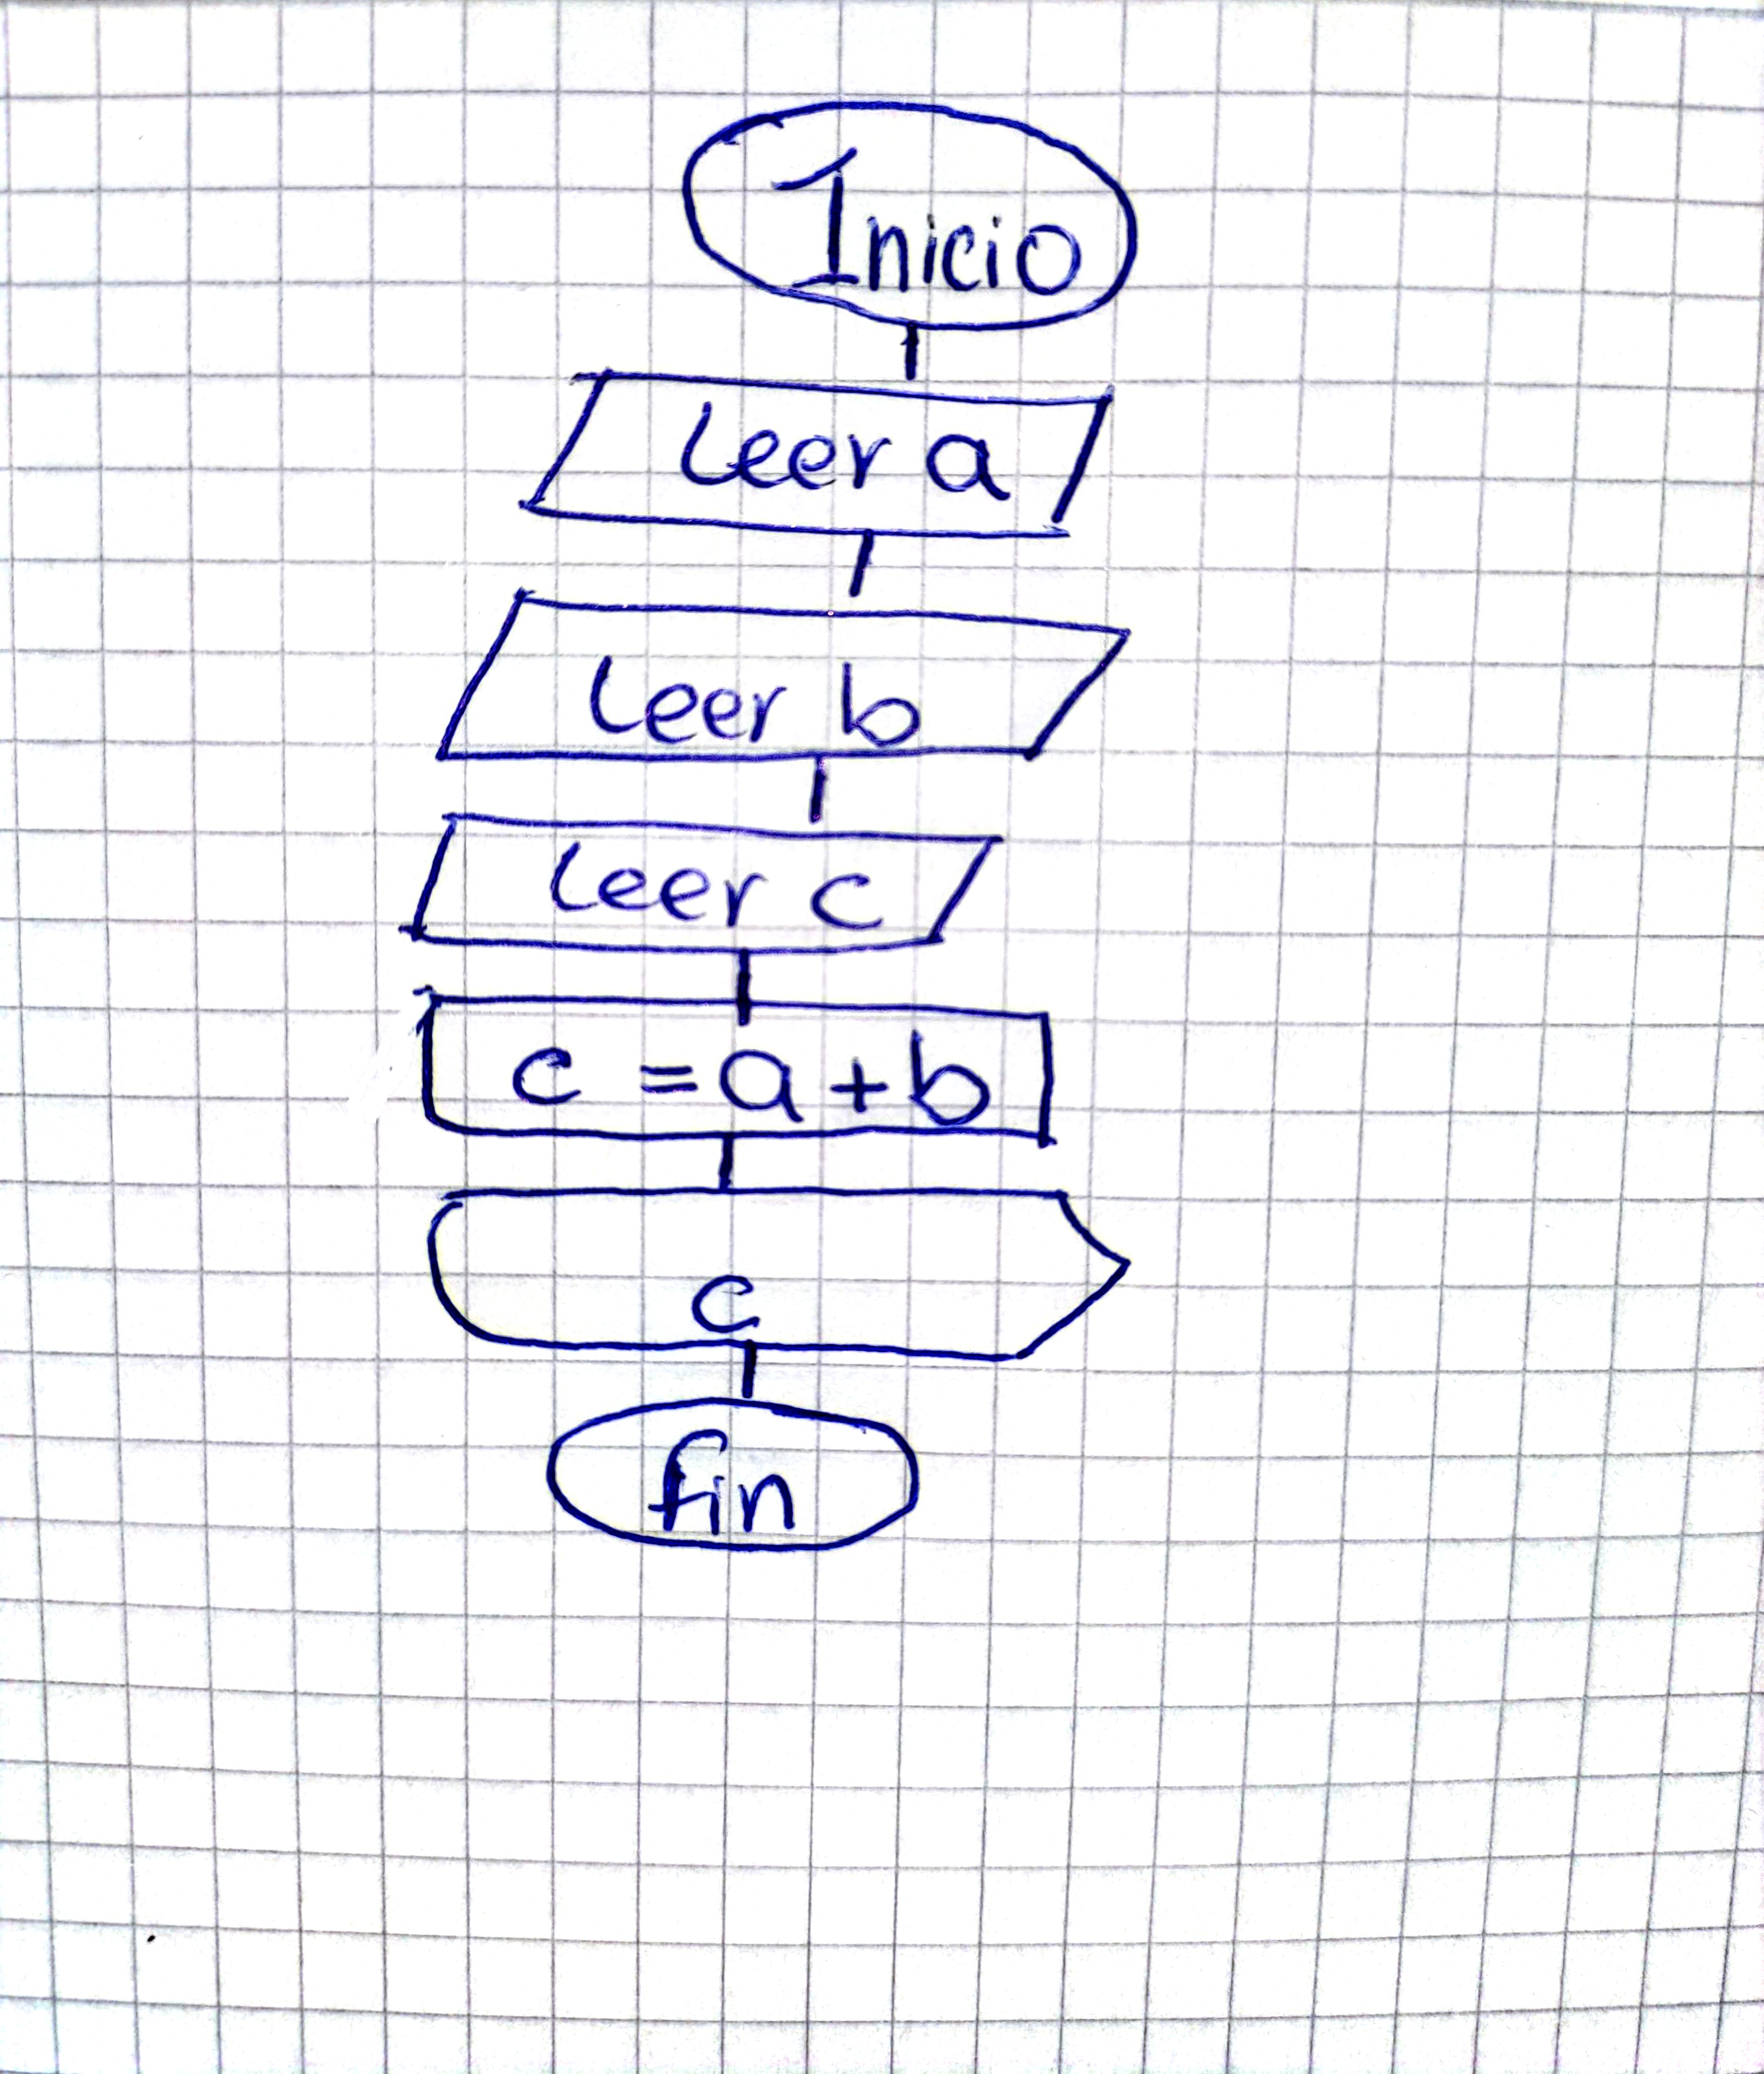 Inicio
leer a
leer b
leer c
c = a + b
c
fin